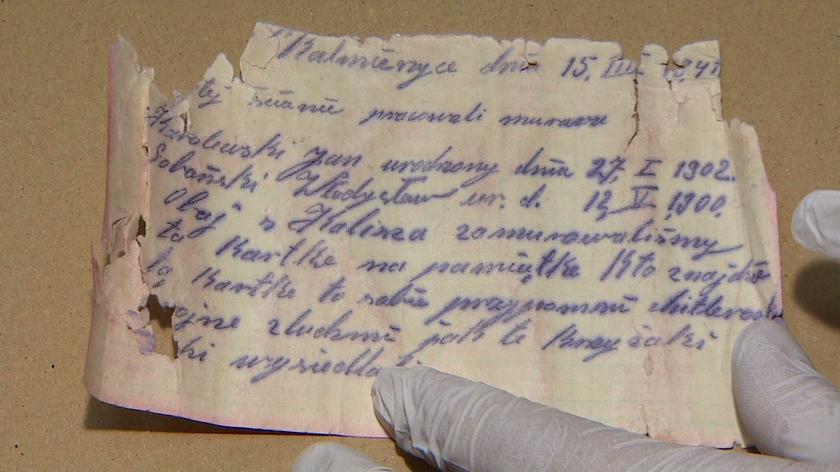 Kalmieryce dnia 15. III 1941
tej ścianie pracowali murarze
Karolewski Jan urodzony dnia 27. I 1902.
Sobański Władysław ur. d. 12 V 1900.
Obaj z Kalisza zamurowaliśmy
tą Kartke na pamiątke Kto znajdzie
tą Kartke to sobie przypomni chitlerows
ojne zluchmi jak te Krzyżaki
ki wysiedla